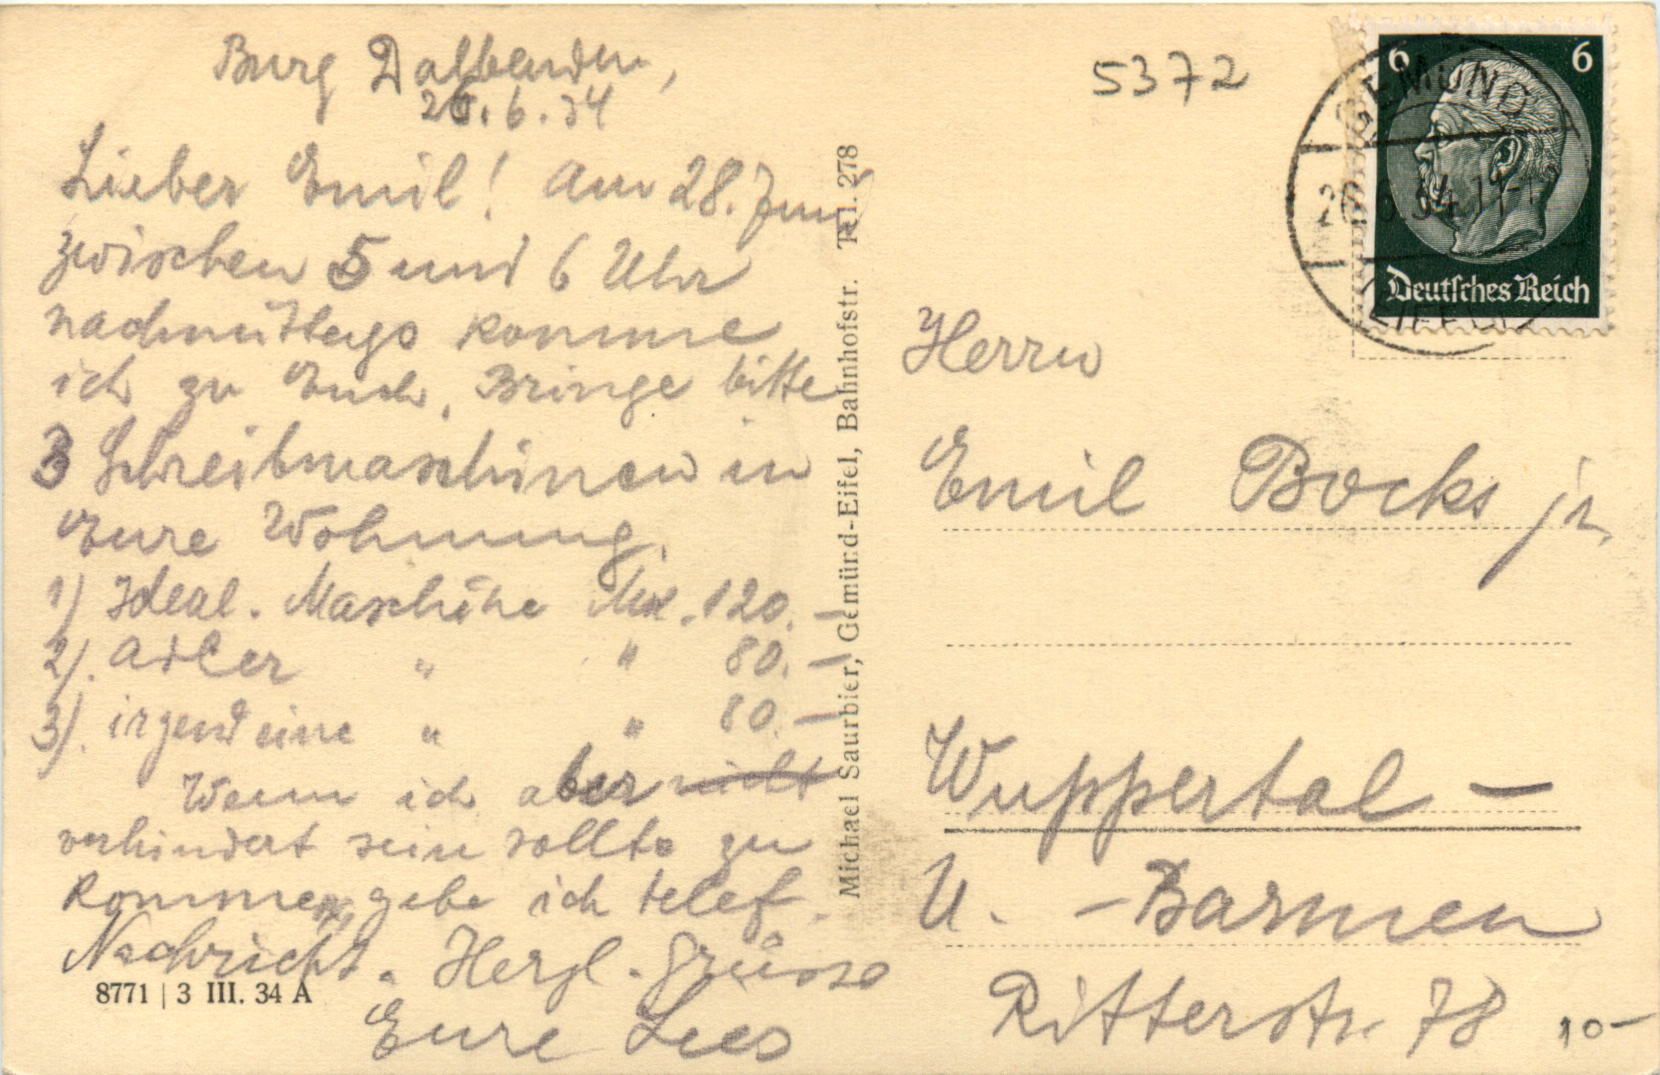 Burg Dalbenden,
26.6.34
Lieber Emil! Am 28. Juni
zwischen 5 und 6 Uhr
nachmittags komme
ich zu Euch. Bringe bitte
3 Schreibmaschinen in
Eure Wohnung.
1) Ideal. Maschine Mk. 120.–
2). Adler " " 80.–
3). irgend eine " " 80.–
Wenn ich aber nicht
verhindert sein sollte zu
kommen, gebe ich telef.
Nachricht. Herzl. Grüsse
Eure Lees
8771 | 3 III. 34 A
Michael Saurbier, Gemünd-Eifel, Bahnhofstr. Tel. 278
5372
6 6
Deutsches Reich
GEMÜND
26.6.34.11-1
EIFEL
Herrn
Emil Bocks jr.
Wuppertal –
U. - Barmen
Ritterstr. 78
10–